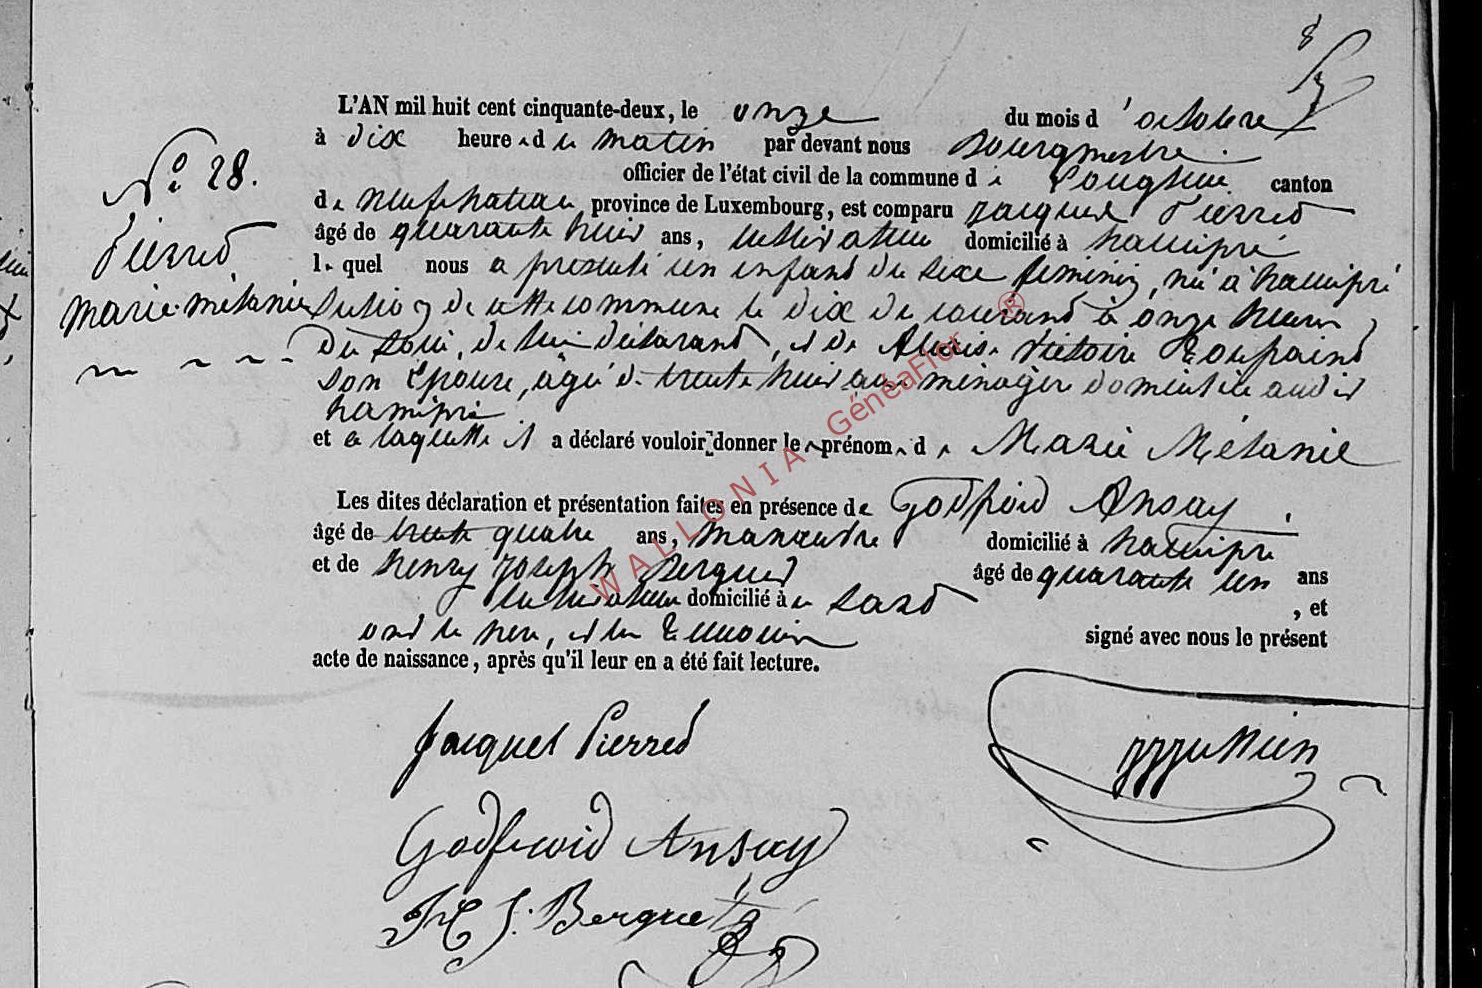 8
L'AN mil huit cent cinquante-deux, le onze du mois d'octobre
à dix heure s du matin par devant nous Bourgmestre
officier de l'état civil de la commune de Longlier canton
de neufchateau province de Luxembourg, est comparu Jacques Pierred
âgé de quarante huit ans, cultivateur domicilié à hamipré
lequel nous a presenté un enfant du sexe feminin, né à hamipré
section de cette commune le dix du courant à onze heures
du soir, de lui déclarant, et de Victoire
son épouse, âgé de trente huit ans ménager domiciliée audit
hamipré
et a laquelle il a déclaré vouloir donner les prénoms de Marie Mélanie
Les dites déclaration et présentation faites en présence de Godfroid Ansay
âgé de trente quatre ans, manœuvre domicilié à hamipré
et de henry Joseph Berguet âgé de quarante un ans
cultivateur domicilié à Sart, et
ont le pere, et les temoins signé avec nous le présent
acte de naissance, après qu'il leur en a été fait lecture.
No 28.
Pierred
marie-mélanie
Jacques Pierred
Godfroid Ansay
H J. Berguet
WALLONIA GénéaFlor ®